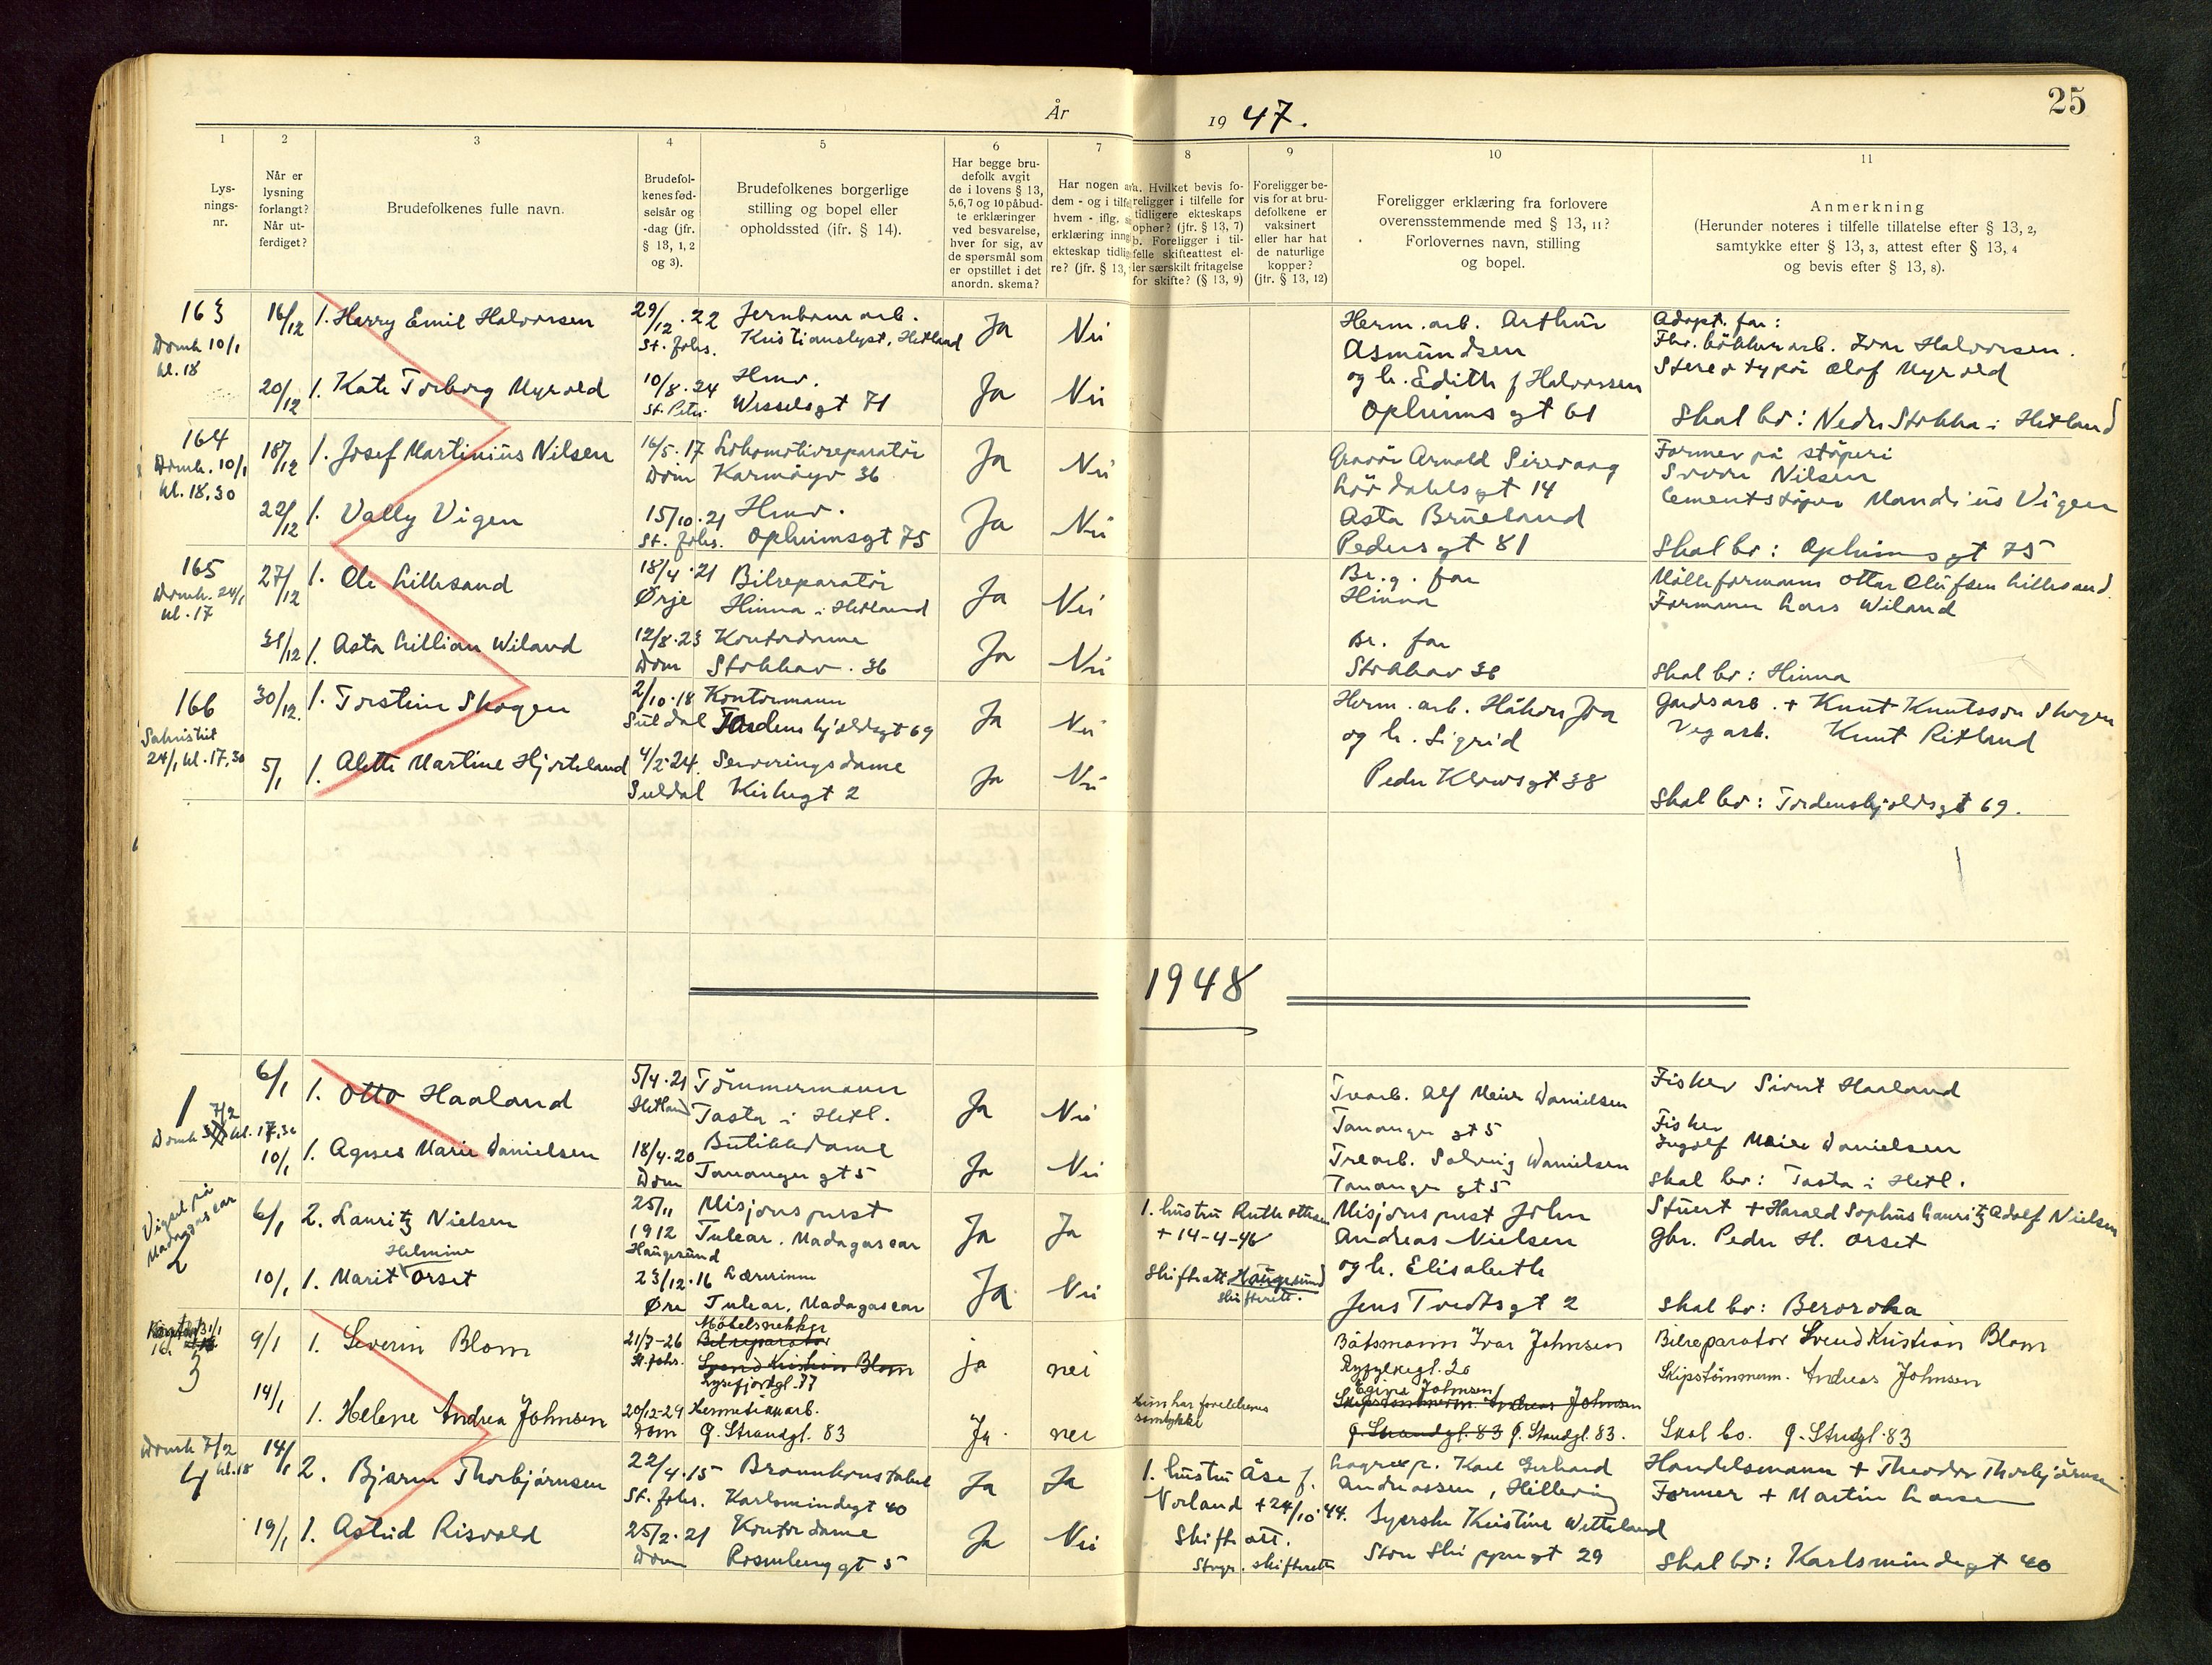 25
År 1947.
1 2 3 4 5 6 7 8 9 10 11
Lys-
nings-
nr.
Når er
lysning
forlangt?
Når ut-
ferdiget?
Brudefolkenes fulle navn.
Brudefol-
kenes fød-
selsår og
-dag (jfr.
§ 13, 1, 2
og 3).
Brudefolkenes borgerlige
stilling og bopel eller
opholdssted (ifr. § 14).
Har begge bru-
defolk avgit
de i lovens § 13,
5,6,7 og 10 påbud-
te erklæringer
ved besvarelse,
hver for sig, av
de spørsmål som
er opstillet i det
anordn. skema?
Har nogen av
dem - og i tilfe
hvem - iflg.
erklæring inng
ekteskap tidlig
re? (jfr. § 13,
a. Hvilket bevis fo-
religger i tilfelle for
tidligere ekteskaps
ophør? (jfr. § 13, 7)
b. Foreligger i til-
felle skifteattest el-
ler særskilt fritagelse
for skifte? (§ 13, 9)
Foreligger be-
vis for at bru-
defolkene er
vaksinert
eller har hat
de naturlige
kopper?
(jfr. § 13, 12)
Foreligger erklæring fra forlovere
overensstemmende med § 13, 11?
Forlovernes navn, stilling
og bopel.
Anmerkning
(Herunder noteres i tilfelle tillatelse efter § 13, 2,
samtykke efter § 13, 3, attest efter § 13, 4
og bevis efter § 13, 8).
163
Domk 10/1
kl. 18
16/12 1. Harry Emil Halvorsen
29/12.22
St. Johs.
Jernbanearb.
Kristianslyst, Hetland
Ja Nei
Herm. arb. Arthur
Asmundsen
Adopt. far:
Ivar Halvorsen.
20/12 1. Kate Torborg Myrvold
10/8.24
St. Petri
Hmv.
Wesselsgt 71
Ja Nei
og h. Edith f Halvorsen
Opheimsgt 61
Stereotypør Olaf Myrvold
Skal bo: Nedre Stokka i Hetland
164
Domk. 10/1
kl. 18,30
18/12 1. Josef Martinius Nilsen
16/5.17
Dom
Lokomotivreparatør
Karmøygt 36
Ja Nei
Gravør Arnold Sirevaag
Løvdahlsgt 14
Former på støperi
Nilsen
22/12 1. Vally Vigen
15/10.21
St. Johs.
Hmv.
Opheimsgt 75
Ja Nei
Asta Brueland
Pedersgt 81
Cementstøper Mandius Vigen
Skal bo: Opheimsgt 75
165
Domk. 24/1
kl. 17
27/12 1. Ole Lillesand
18/4.21
Ørje
Bilreparatør
Hinna i Hetland
Ja Nei
Br.g. far
Hinna
Mølleformann Ottar Olufsen Lillesand.
Formann Lars Wiland
31/12 1. Asta Lillian Wiland
12/8.23
Dom
Kontordame
Stokkav. 36
Ja Nei
Br. far
Stokkav 36
Skal bo: Hinna
166
Sakristiet
24/1 kl. 17,30
30/12. 1. Torstein Skogen
2/10.18
Suldal
Kontormann
Tordenskjoldsgt 69
Ja Nei
Herm. arb. Håkon Joa
og h. Sigrid
Gardsarb. + Knut Knutsson Skogen
Vegarb. Knut Ritland
5/1 1. Alette Martine Hjorteland
4/2.24.
Suldal
Serveringsdame
Kirkegt 2
Ja Nei
Peder Klowsgt 38
Skal bo: Tordenskjoldsgt 69.
1948
1
7/2
Domk kl. 17,30
6/1 1. Otto Haaland
5/4.21
Hetland
Tømmermann
Tasta i Hetl.
Ja Nei
Trearb. Alf Meier Danielsen
Tanangergt 5
Fisker Sivert Haaland
10/1 1. Agnes Marie Danielsen
18/4.20
Dom
Butikkdame
Tanangergt 5
Ja Nei
Trearb. Solveig Danielsen
Tanangergt 5
Fisker
Ingolf Meier Danielsen
Skal bo: Tasta i Hetl.
Vigsel på
Madagascar
2
6/1 2. Lauritz Nielsen
25/11
1912
Haugesund
Misjonsprest
Tulear, Madagascar
Ja Ja
1. hustru Ruth Ottesen
+ 14-4-46
Skifteatt. Haugesund
skifterett.
Misjonsprest John
Andreas Nielsen
Stuert + Harald Sophus Lauritz Adolf Nielsen
10/1 1. Marit Helmine Orset
23/12.16
Øre
Lærerinne
Tulear, Madagascar
Ja Nei
og h. Elisabeth
Jens Tvedtsgt 2
Gbr. Peder H. Orset
Skal bo: Beroroha
3
9/1 1. Severin Blom
21/7-26
St. Johs.
Møbelsnekker
Bilreparatør
Svend Kristian Blom
Lysefjordgt. 77
ja nei
Båtsmann Ivar Johnsen
Ryfylkegt. 20
Bilreparatør Svend Kristian Blom
14/1 1. Helene Andrea Johnsen
20/12-29
Dom
Hermetikkarb.
Q. Strandgt. 83
Ja nei
hun har foreldrenes
samtykke
Egina Johnsen
Skipstømmerm. Andreas Johnsen
Q. Strandgt. 83 Q. Standgt. 83.
Skipstømmerm. Andreas Johnsen
Skal bo. Q. Strdgt. 83
Domk 7/2
kl. 18
4
14/1 2. Bjarne Thorbjørnsen
22/4.15
St. Johs.
Brannkonstabel
Karlsmindegt 40
Ja Ja
1. hustru Åse f.
Norland + 24/10.44.
Skifteatt.
Stvgr. skifterett
Lagereksp. Karl Gerhard
Andreassen, Hillevåg
Handelsmann + Theodor Thorbjørnsen
19/1 1. Astrid Risvold
25/2.21
Dom
Kontordame
Rosenberggt 5
Ja Nei
Syerske Kristine Wetteland
Store Skippergt 29
Former + Martin Larsen
Skal bo: Karlsmindegt 40